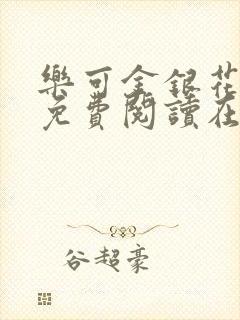 樂可金銀花
免費閱讀在
谷超豪